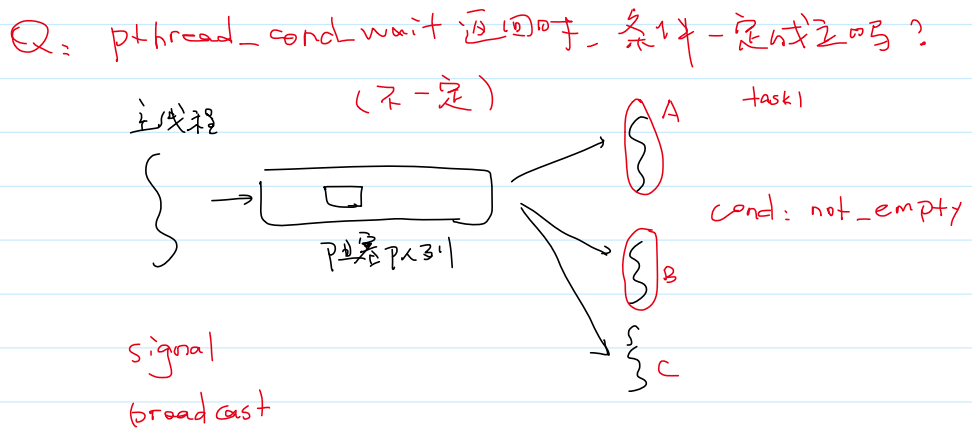 Q: pthread_cond_wait 返回时, 条件一定成立吗?
(不一定)
主线程
task1
A
cond: not_empty
阻塞队列
B
C
signal
broadcast